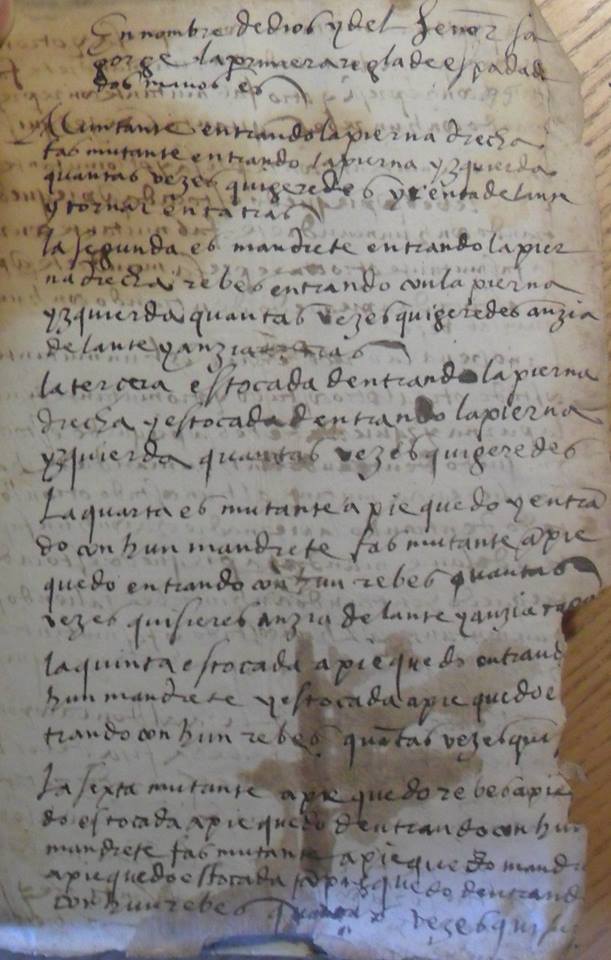 En nombre de dios y del senor sa
gorge la primera regla de espada de
dos manos es
Mutante entrando la pierna drecha
fas mutante entrando la pierna yzquierda
quantas vezes quigeredes y venta delante
y tornar enta tras
la segunda es mandrete entrando la pier
na drecha rebes entrando con la pierna
yzquierda quantas vezes quigeredes anzia
delante y anzia tras
la tercera estocada dentrando la pierna
drecha y estocada dentrando la pierna
yzquierda quantas vezes quigeredes
La quarta es mutante a pie quedo y entra
do con hun mandrete fas mutante a pie
quedo entrando con hun rebes quantas
vezes quisieres anzia delante y anzia
la quinta estocada a pie quedo entrand
hun mandrete y estocada a pie quedo e
trando con hun rebes quatas vezes qui
La sexta mutante a pie quedo rebes a pie
do estocada a pie quedo dentrando con hun
mandrete fas mutante a pie quedo mandre
a pie quedo estocada a pie quedo dentrand
con hun rebes quantas vezes quisi